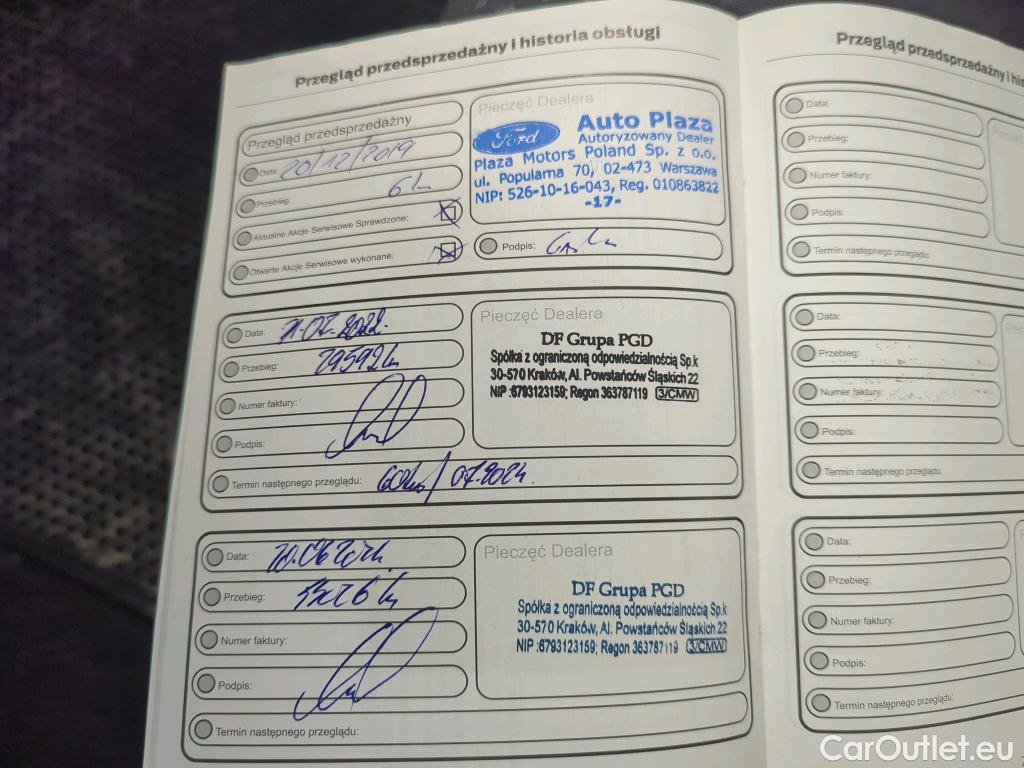 Przegląd przedsprzedażny i historia obsługi
Przegląd przedsprzedażny
Data: 20/12/2019
Przebieg: 6 km
Aktualne Akcje Serwisowe Sprawdzone:
Otwarte Akcje Serwisowe wykonane:
Pieczęć Dealera
Ford
Auto Plaza
Autoryzowany Dealer
Plaza Motors Poland Sp. z o.o.
ul. Popularna 70, 02-473 Warszawa
NIP: 526-10-16-043, Reg. 010863822
-17-
Podpis:
Data: 11.07.2022.
Przebieg: 29592 km
Numer faktury:
Podpis:
Termin następnego przeglądu: 07.2024.
Pieczęć Dealera
DF Grupa PGD
Spółka z ograniczoną odpowiedzialnością Sp.k
30-570 Kraków, Al. Powstańców Śląskich 22
NIP :6793123159; Regon 363787119 3/CMW
Data:
Przebieg:
Numer faktury:
Podpis:
Termin następnego przeglądu:
Pieczęć Dealera
DF Grupa PGD
Spółka z ograniczoną odpowiedzialnością Sp.k
30-570 Kraków, Al. Powstańców Śląskich 22
NIP :6793123159; Regon 363787119 3/CMW
Przegląd przedsprzedażny i his
Data:
Przebieg:
Numer faktury:
Podpis:
Termin następnego przeglądu:
Data:
Przebieg:
Numer faktury:
Podpis:
Termin następnego przeglądu:
Data:
Przebieg:
Numer faktury:
Podpis:
Termin następnego przeglądu:
CarOutlet.eu